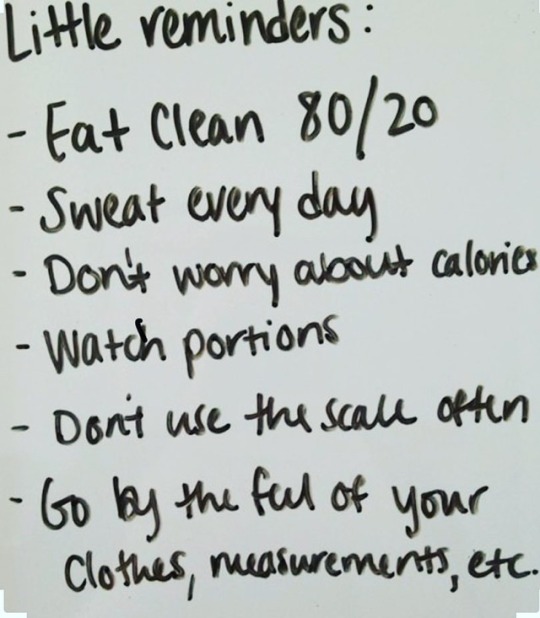 Little reminders:
- Eat Clean 80/20
- Sweat every day
- Don't worry about calories
- Watch portions
- Don't use the scale often
- Go by the feel of your
Clothes, measurements, etc.